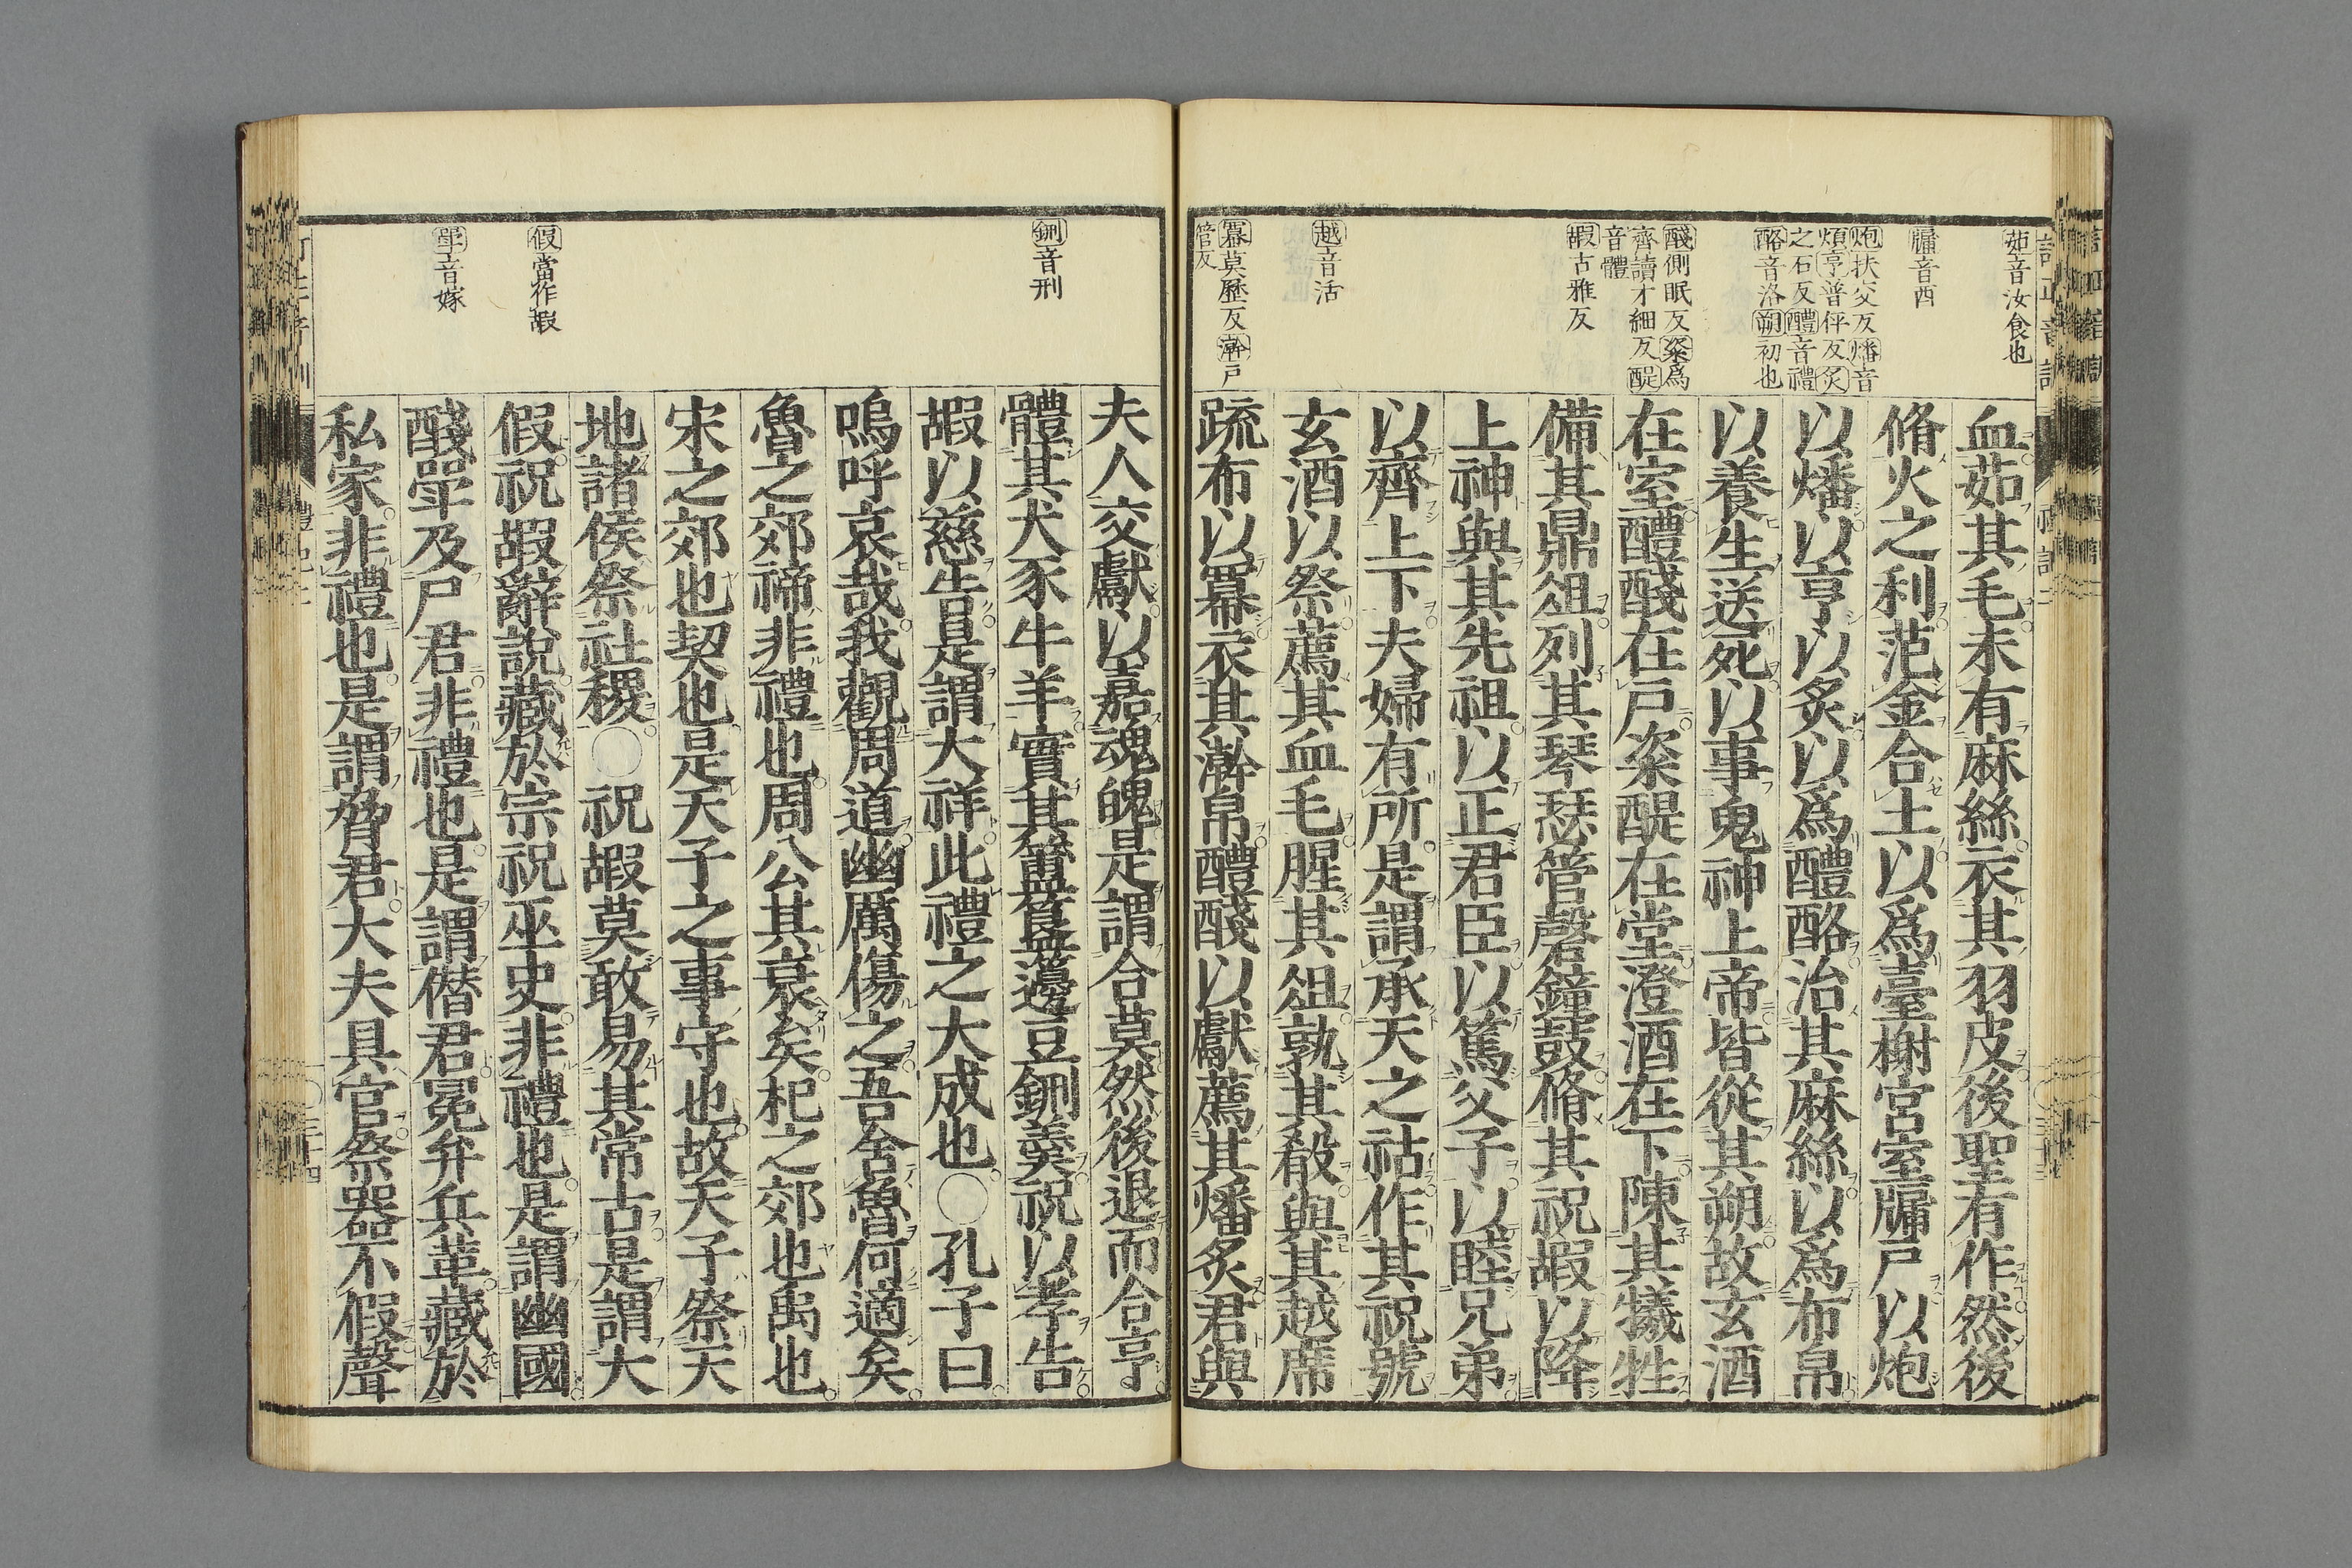 茹音汝食也
牖音酉
炮扶交反燔音
煩亨普伻反炙
之石反醴音禮
酪音洛朔初也
醆側眠反粢爲
齊讀才細反醍
音體
嘏古雅反
越音活
冪莫歷反澣戸
管反
血茹其毛未有麻絲衣其羽皮後聖有作然後
脩火之利范金合土以爲臺榭宮室牖戸以炮
以燔以亨以炙以爲醴酪治其麻絲以爲布帛
以養生送死以事鬼神上帝皆從其朔故玄酒
在室醴醆在戸粢醍在堂澄酒在下陳其犧牲
備其鼎俎列其琴瑟管磬鐘鼓脩其祝嘏以降
上神與其先祖以正君臣以篤父子以睦兄弟
以齊上下夫婦有所是謂承天之祜作其祝號
玄酒以祭薦其血毛腥其俎孰其殽與其越席
疏布以冪衣其澣帛醴醆以獻薦其燔炙君與
鉶音刑
假當作嘏
斝音嫁
夫人交獻以嘉魂魄是謂合莫然後退而合亨
體其犬豕牛羊實其簠簋籩豆鉶羹祝以孝告
嘏以慈告是謂大祥此禮之大成也○孔子曰
嗚呼哀哉我觀周道幽厲傷之吾舍魯何適矣
魯之郊禘非禮也周公其衰矣杞之郊也禹也
宋之郊也契也是天子之事守也故天子祭天
地諸侯祭社稷○祝嘏莫敢易其常古是謂大
假祝嘏辭說藏於宗祝巫史非禮也是謂幽國
醆斝及尸君非禮也是謂僭君冕弁兵革藏於
私家非禮也是謂脅君大夫具官祭器不假聲